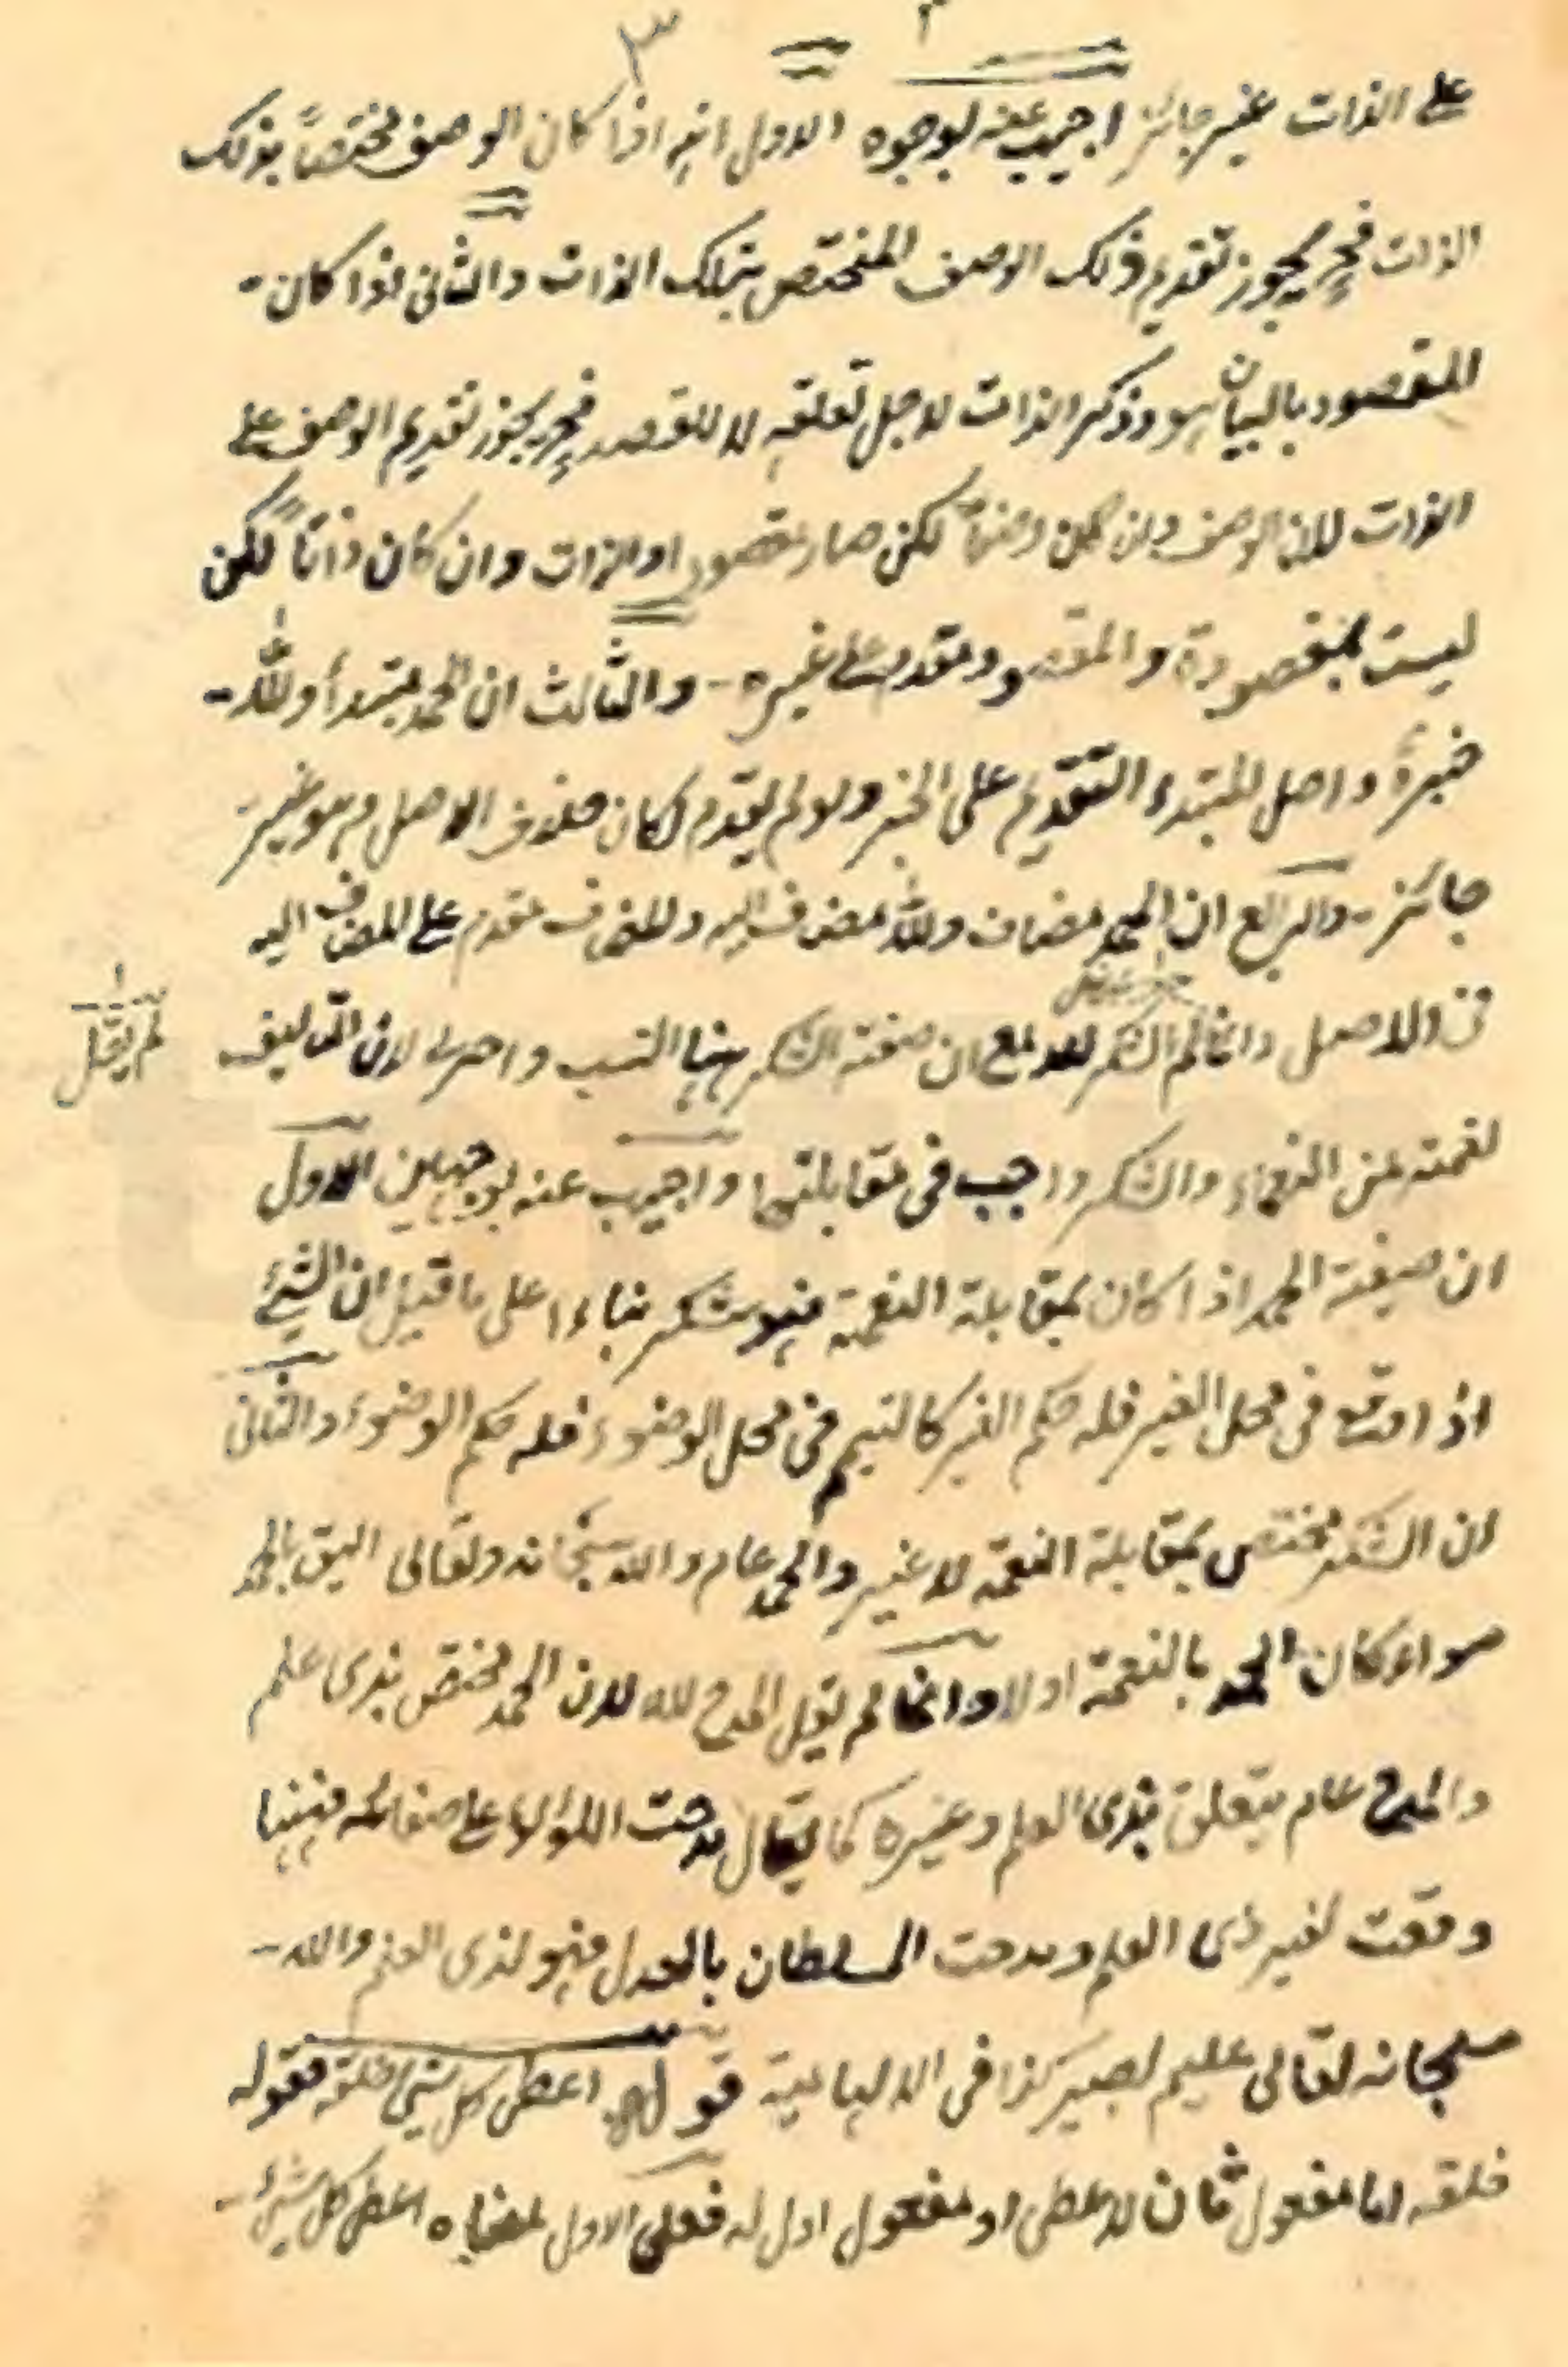 ٣
على الذات غير جائز اجيب عنه بوجوه الاول انه اذا كان الوصف مختصاً بذلك
الذات فح يجوز تقديم ذلك الوصف المختص بتلك الذات والثانى اذا كان
المقصود بالبيان هو وذكر الذات لاجل تعلقه لا للقصد فح يجوز تقديم الوصف على
الذات لان الوصف وان كان وصفاً لكن صار مقصود او الذات وان كان ذاتاً لكن
ليست بمقصودة والمقصود مقدم على غيره - والثالث ان الحمد مبتدأ ولله
خبره واصل المبتدء التقديم على الخبر ولو لم يقدم لكان خلاف الاصل وهو غير
جائز - والرابع ان الحمد مضاف ولله مضاف اليه والمضاف مقدم على المضاف اليه
فى الاصل وانما لم الشكر لله مع ان صيغة الشكر ههنا انسب واحرى لان التاليف
لم يقل
نعمة من النعماء والشكر واجب فى مقابلتها واجيب عنه بوجهين الاول
ان صيغة الحمد اذا كان بمقابلة النعمة فهو شكر بناءا على ما قيل ان الشئ
اذا وقع فى محل الغير فله حكم الغير كالتيمم فى محل الوضوء فله حكم الوضوء والثانى
ان الشكر مختص بمقابلة النعمة لا غير والحمد عام والله سبحانه وتعالى اليق بالحمد
سواء كان الحمد بالنعمة اولا وانما لم يقل المدح لله لان الحمد مختص بذى علم
والمدح عام يتعلق بذى العلم وغيره كما يقال مدحت اللؤلؤ على صفائه فههنا
وقعت لغير ذى العلم ومدحت السلطان بالعدل فهو لذى العلم والله
سبحانه تعالى عليم بصير كذا فى قوله اعطى كل شئ خلقه فقوله
خلقه اما مفعول ثان لاعطى او مفعول اول له فعلى الاول معناه اعطى كل شئ